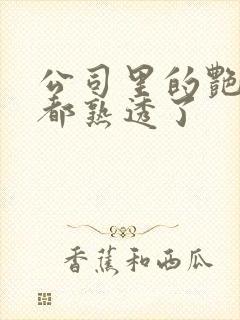 公司里的艷
都熟透了
香蕉和西瓜